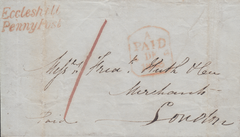 Eccleshill
Penny Post
PAID
Messrs Fredk Huth & Co
Merchants
London
Paid